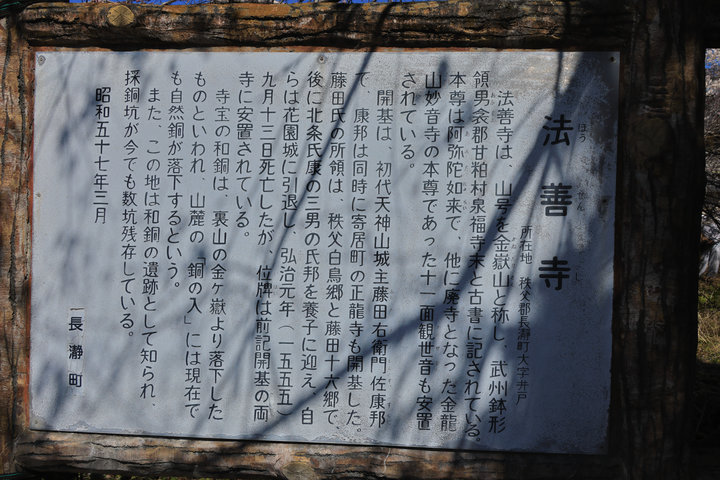 法善寺
ほう ぜん じ
所在地 秩父郡長瀞町大字井戸
法善寺は、山号を金嶽山と称し、武州鉢形
領男衾郡甘粕村泉福寺末と古書に記されている。
本尊は阿弥陀如来で、他に廃寺となった金龍
山妙音寺の本尊であった十一面観世音も安置
されている。
開基は、初代天神山城主藤田右衛門佐康邦
で、康邦は同時に寄居町の正龍寺も開基した。
藤田氏の所領は、秩父白鳥郷と藤田十六郷で、
後に北条氏康の三男の氏邦を養子に迎え、自
らは花園城に引退し、弘治元年（一五五五）
九月十三日死亡したが、位牌は前記開基の両
寺に安置されている。
寺宝の和銅は、裏山の金ヶ嶽より落下した
ものといわれ、山麓の「銅の入」には現在で
も自然銅が落下するという。
また、この地は和銅の遺跡として知られ、
採銅坑が今でも数坑残存している。
昭和五十七年三月
長瀞町